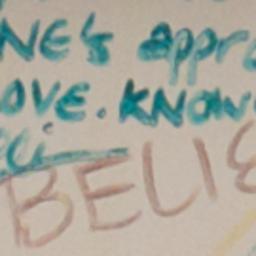 NE's appr
OVE. KNOW
BELIE